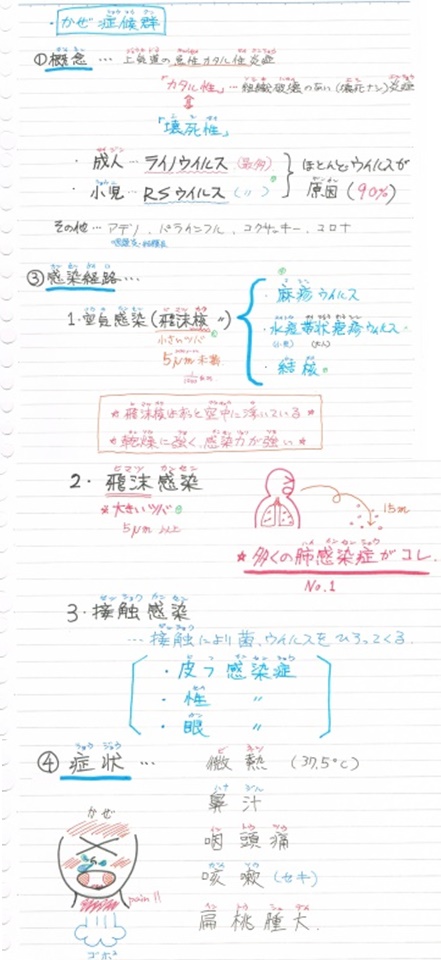 ・かぜ症候群
①概念 … 上気道の急性カタル性炎症
「カタル性」…組織破壊のない(壊死ナシ)炎症
「壊死性」
・成人…ライノウイルス(最多)
・小児…RSウイルス(〃)
ほとんどウイルスが
原因(90%)
その他…アデノ、パラインフル、コクサッキー、コロナ
③感染経路…
1.空気感染(飛沫核〃)
小さいツバ
5μm未満
・麻疹ウイルス
・水痘帯状疱疹ウイルス
(小児) (大人)
・結核
★飛沫核はずっと空中に浮いている★
★乾燥に強く、感染力が強い★
2.飛沫感染
ヒマツ カンセン
★大きいツバ
5μm以上
15m
★多くの肺感染症がコレ.
No.1
3.接触感染
…接触により菌、ウイルスをひろってくる
・皮フ感染症
・性 〃
・眼 〃
④症状… 微熱 (37.5℃)
鼻汁
咽頭痛
咳嗽 (セキ)
扁桃腫大
かぜ
pain!!
ゴホゴホ